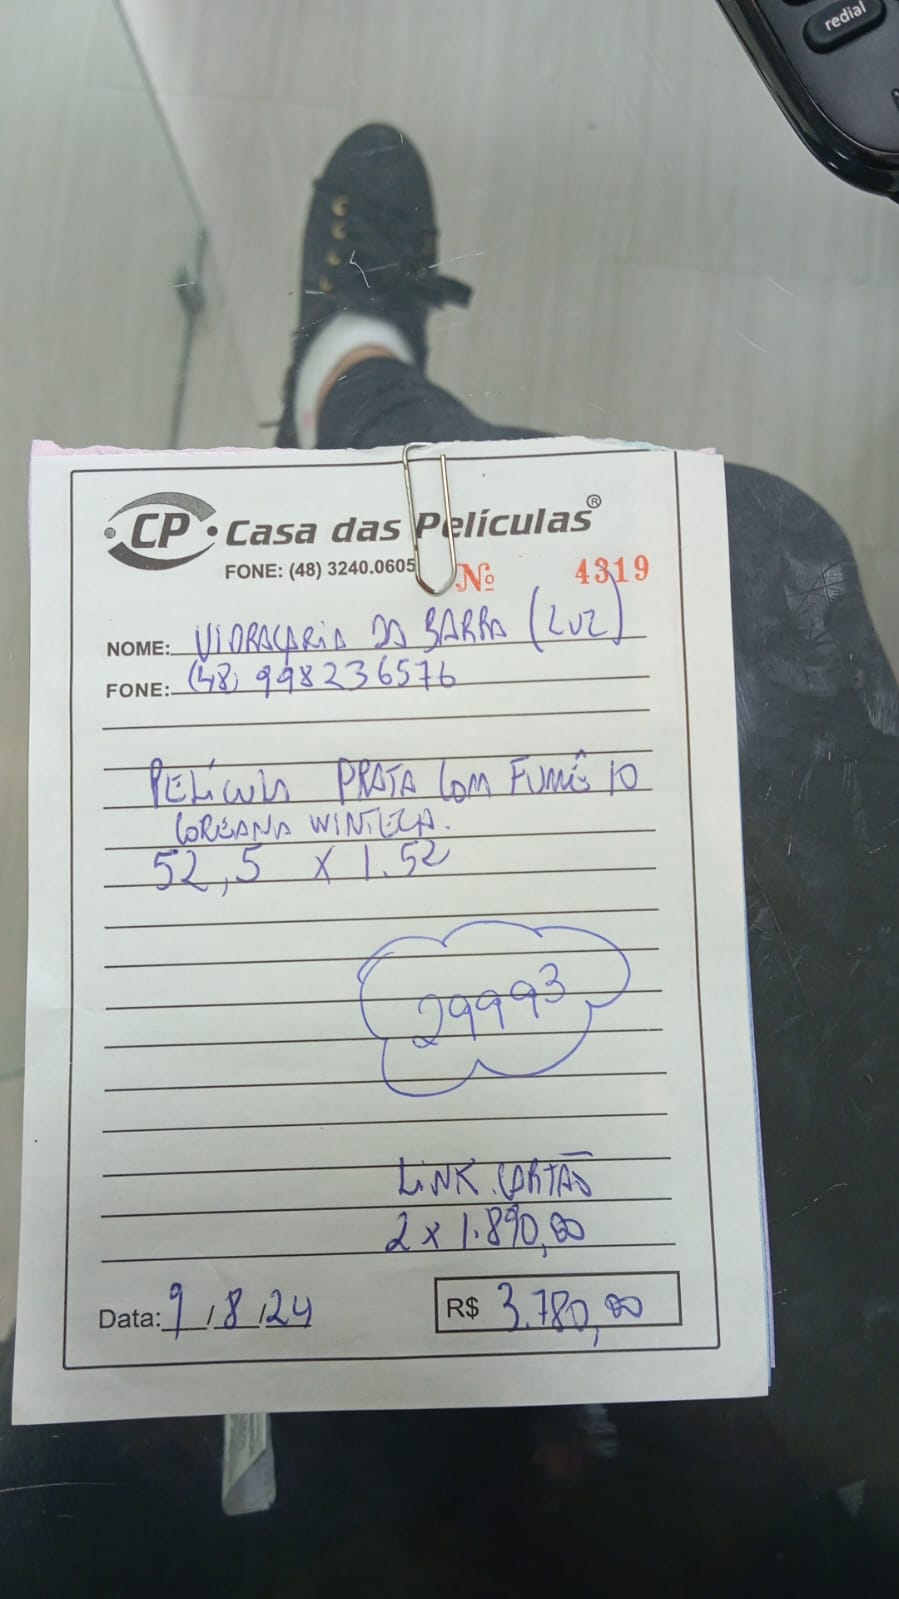 redial
CP Casa das Películas®
FONE: (48) 3240.0605 Nº 4319
NOME: VIDRAÇARIA DA BARRA (LUZ)
FONE: (48) 998236576
PELÍCULA PRATA COM FUMÊ 10
COREANA WINTECH.
52,5 X 1.52
29993
LINK CARTÃO
2 x 1.890,00
Data: 9/8/24 R$ 3.780,00